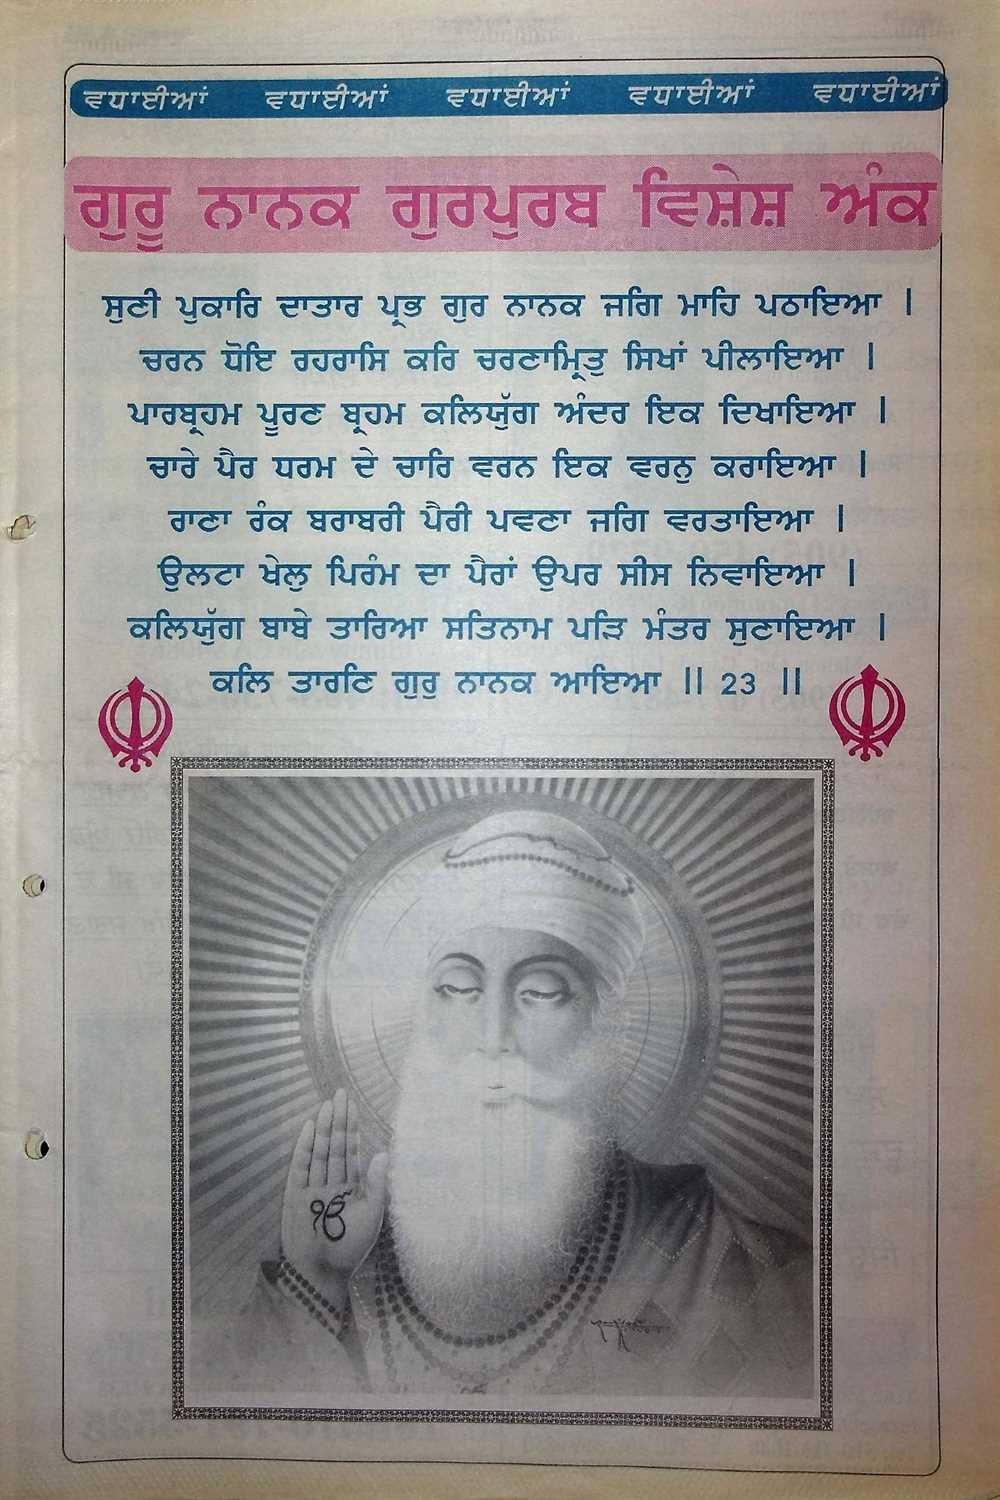 ਵਧਾਈਆਂ ਵਧਾਈਆਂ ਵਧਾਈਆਂ ਵਧਾਈਆਂ ਵਧਾਈਆਂ
ਗੁਰੂ ਨਾਨਕ ਗੁਰਪੁਰਬ ਵਿਸ਼ੇਸ਼ ਅੰਕ
ਸੁਣੀ ਪੁਕਾਰਿ ਦਾਤਾਰ ਪ੍ਰਭ ਗੁਰ ਨਾਨਕ ਜਗਿ ਮਾਹਿ ਪਠਾਇਆ ।
ਚਰਨ ਧੋਇ ਰਹਰਾਸਿ ਕਰਿ ਚਰਣਾਮ੍ਰਿਤੁ ਸਿਖਾਂ ਪੀਲਾਇਆ ।
ਪਾਰਬ੍ਰਹਮ ਪੂਰਣ ਬ੍ਰਹਮ ਕਲਿਯੁੱਗ ਅੰਦਰ ਇਕ ਦਿਖਾਇਆ ।
ਚਾਰੇ ਪੈਰ ਧਰਮ ਦੇ ਚਾਰਿ ਵਰਨ ਇਕ ਵਰਨੁ ਕਰਾਇਆ ।
ਰਾਣਾ ਰੰਕ ਬਰਾਬਰੀ ਪੈਰੀ ਪਵਣਾ ਜਗਿ ਵਰਤਾਇਆ ।
ਉਲਟਾ ਖੇਲੁ ਪਿਰੰਮ ਦਾ ਪੈਰਾਂ ਉਪਰ ਸੀਸ ਨਿਵਾਇਆ ।
ਕਲਿਯੁੱਗ ਬਾਬੇ ਤਾਰਿਆ ਸਤਿਨਾਮ ਪੜਿ ਮੰਤਰ ਸੁਣਾਇਆ ।
ਕਲਿ ਤਾਰਣਿ ਗੁਰੁ ਨਾਨਕ ਆਇਆ ॥ 23 ॥
ੴ